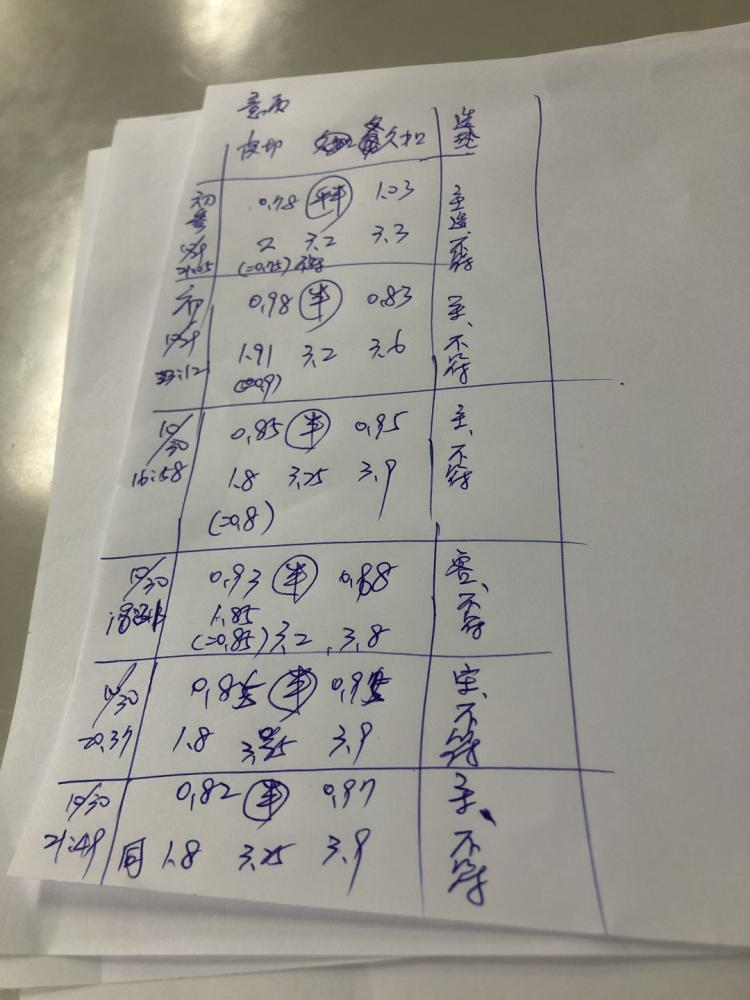 初 0.78 半 1.03 主
2 3.2 3.3 不符
21:05 (=0.75)
初 0.98 半 0.83 主、
1.91 3.2 3.6 不符
(=0.9)
10/30 0.85 半 0.95 主、
16:58 1.8 3.25 3.9 不符
(=0.8)
10/30 0.93 半 0.88 客、
1.85 不符
(=0.85) 3.2 3.8
10/30 0.85 半 0.95 主、
20.37 1.8 3.25 3.9 不符
10/30 0.82 半 0.97 主、
21:49 同 1.8 3.25 3.9 不符